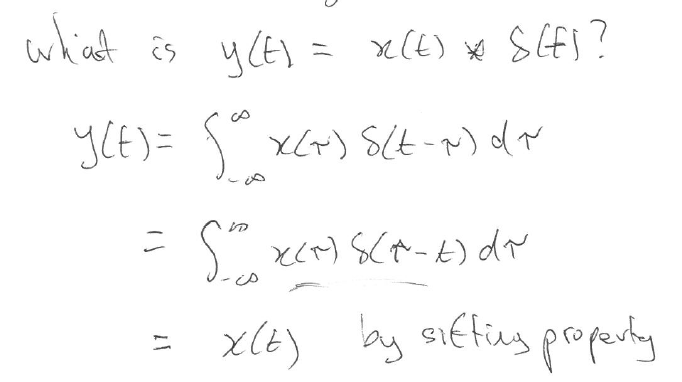 what is y(t) = x(t) * δ(t)?
y(t) = ∫_{-∞}^{∞} x(τ) δ(t-τ) dτ
= ∫_{-∞}^{∞} x(τ) δ(τ-t) dτ
= x(t) by sifting property